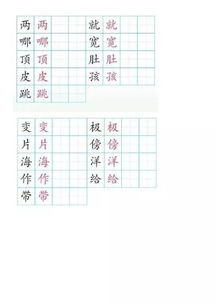 两 两
哪 哪
顶 顶
皮 皮
跳 跳
就 就
宽 宽
肚 肚
孩 孩
变 变
片 片
海 海
作 作
带 带
极 极
傍 傍
洋 洋
给 给